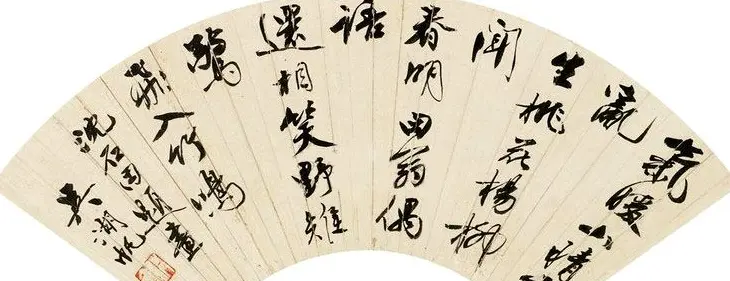 氣暖山晴
生桃花楊柳
間
春明田翁偶
語
還相笑野雉
驚
飛入竹鳴
沈石田題畫
吳湖帆